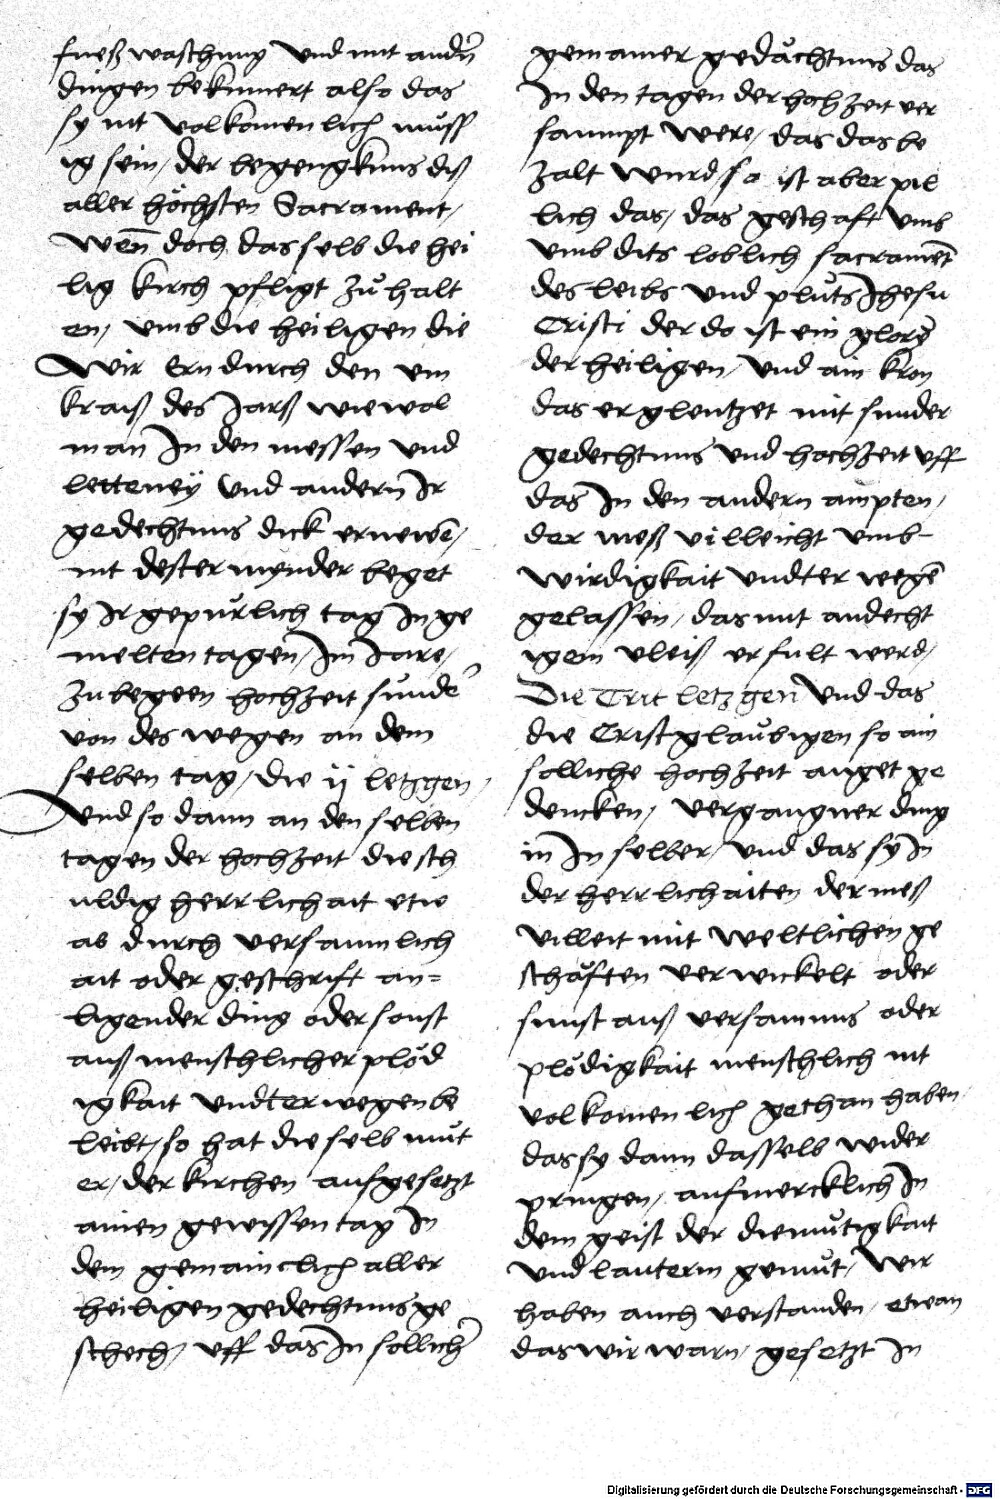 fueß waschung Vnd mit andn̄
dingen bekumert also das
sy nit volkomenlich müss
ig sein, der begengknus diß
aller höchsten Sacrament,
Wen̄ doch das selb die hei
lig kirch pfligt zů halt
en, vmb die heiligen die
Wir Ern durch den vm
kraiß des Jars wie wol
man In den messen vnd
letteney Vnd andern Ir
gedechtnus dick ernewē,
nit dester mynder beget
sy Ir gepürlich tag In ge
melten tagen, Im Jare,
zu begeen hochzeit sundē
von des wegen an dem
selben tag, die ij letzgen,
Vnd so dann an den selben
tagen der hochzeit die sch
uldig herrlichait etw
ab durch versaumlich
ait oder geschrift an=
ligender ding oder sonst
auß menschlicher plöd
igkait vndter wegen be
leibt, so hat die selb můt
er, der kirchen aufgesetzt
ainen gewissen tag In
dem gemainclich aller
heiligen gedechtnus ge
schech, vff das In sollichē
gemainer gedächtnus das
In den tagen der hochzeit ver
saumpt were, das das be
zalt wurd, so ist aber pil
lich das, das geschaft vmb
vmb dits loblich sacramēt
des leibs vnd plůts Jhesu
Cristi der do ist ein glorē
der heiligen, vnd ain kron
das er glentzet mit sunder
gedechtnus vnd hochzeit vff
das In den andern ampten,
der meß villeicht vmb-
wirdigkait vndter wegē
gelassen, das mit andecht
igem vleiß erfult werd,
Die Trit letzgen Vnd das
die Cristglaübigen so ain
solliche hochzeit anget ge
dencken, vergangner ding
in In selber, vnd das sy In
der herrlichaiten der meß
villeit mit weltlichen ge
schäften verwickelt oder
sunst auß versamnus oder
plödigkait menschlich nit
volkomenlich gethan haben
das sy dann dasselb wider
pringen, aufmercklich In
dem geist der diemůtigkait
vnd lauterm gemůt, Wir
haben auch verstanden, etwan
das wir warn, gesetzt In
Digitalisierung gefördert durch die Deutsche Forschungsgemeinschaft - DFG